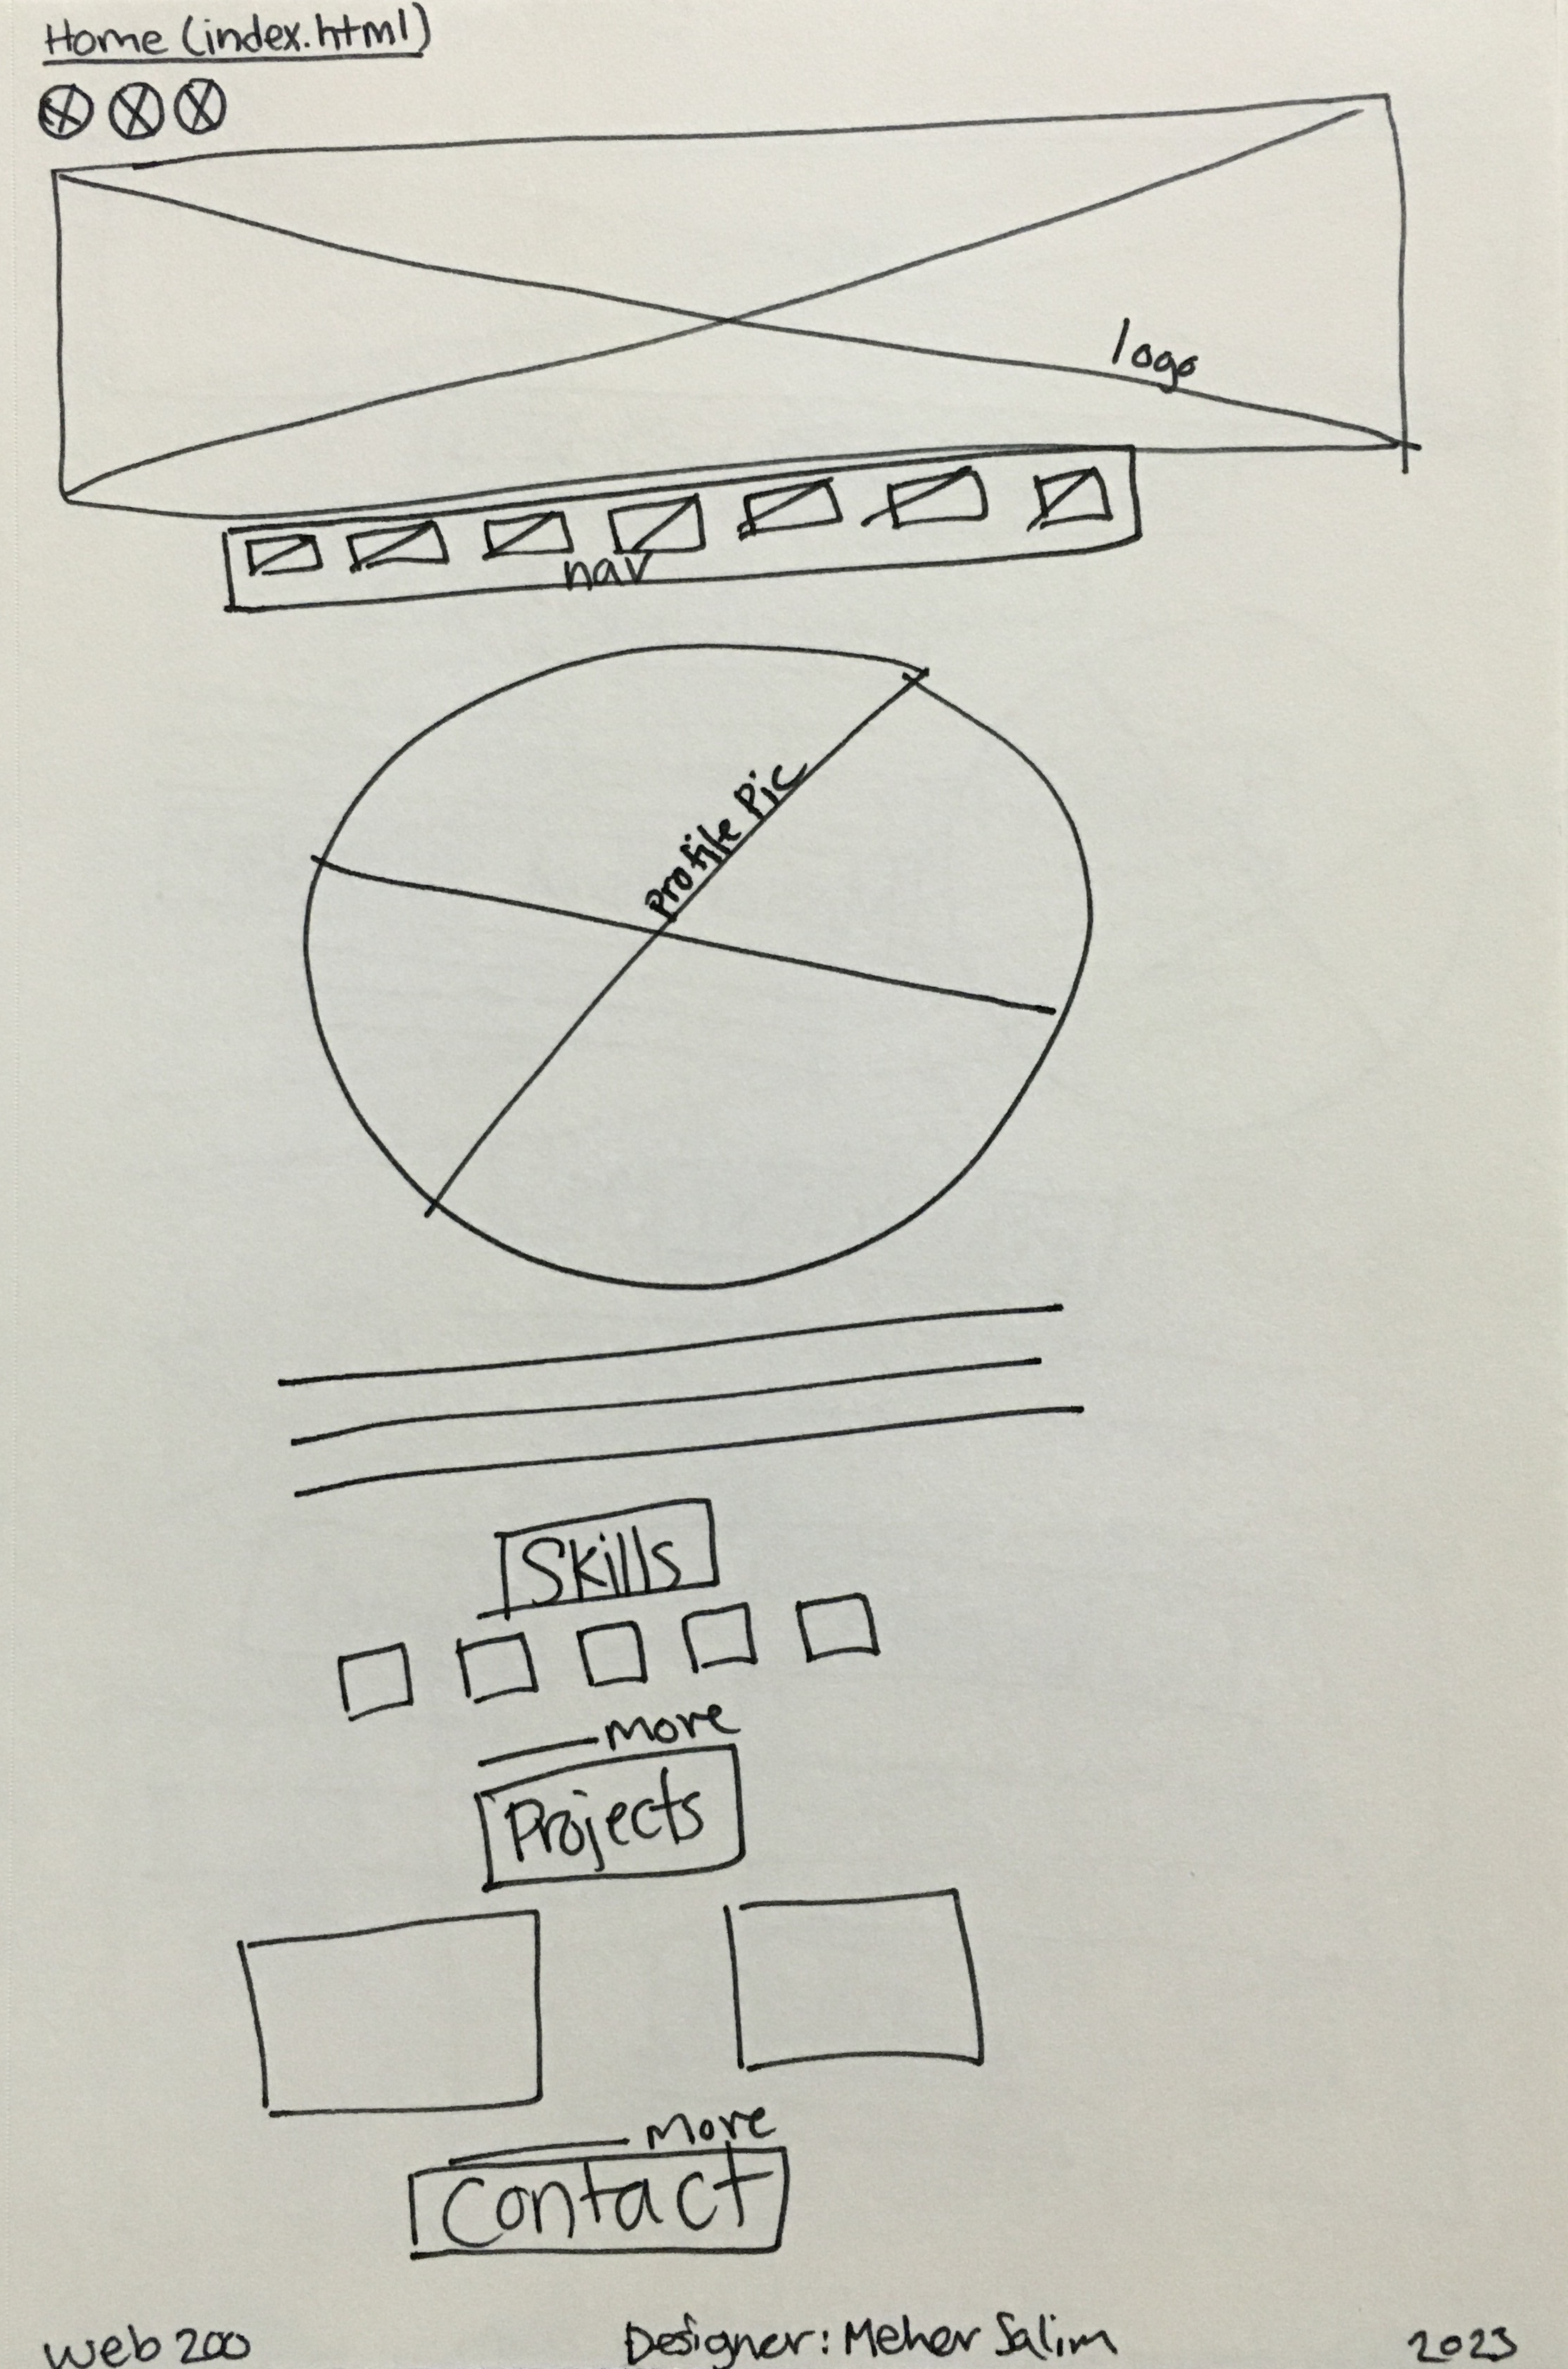 Home (index.html)
logo
nav
Profile Pic
Skills
more
Projects
More
Contact
Web 200
Designer: Meher Salim
2023